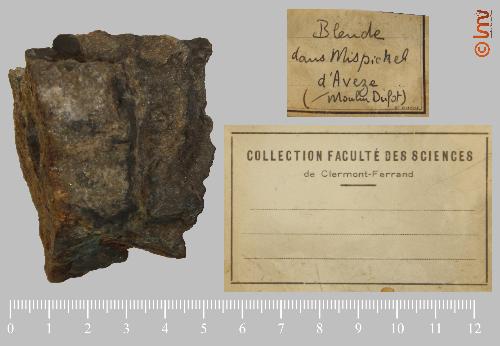 Blende
dans Mispickel
d'Aveze
(Moulin Dufot)
COLLECTION FACULTÉ DES SCIENCES
de Clermont-Ferrand
© lmv
0 1 2 3 4 5 6 7 8 9 10 11 12